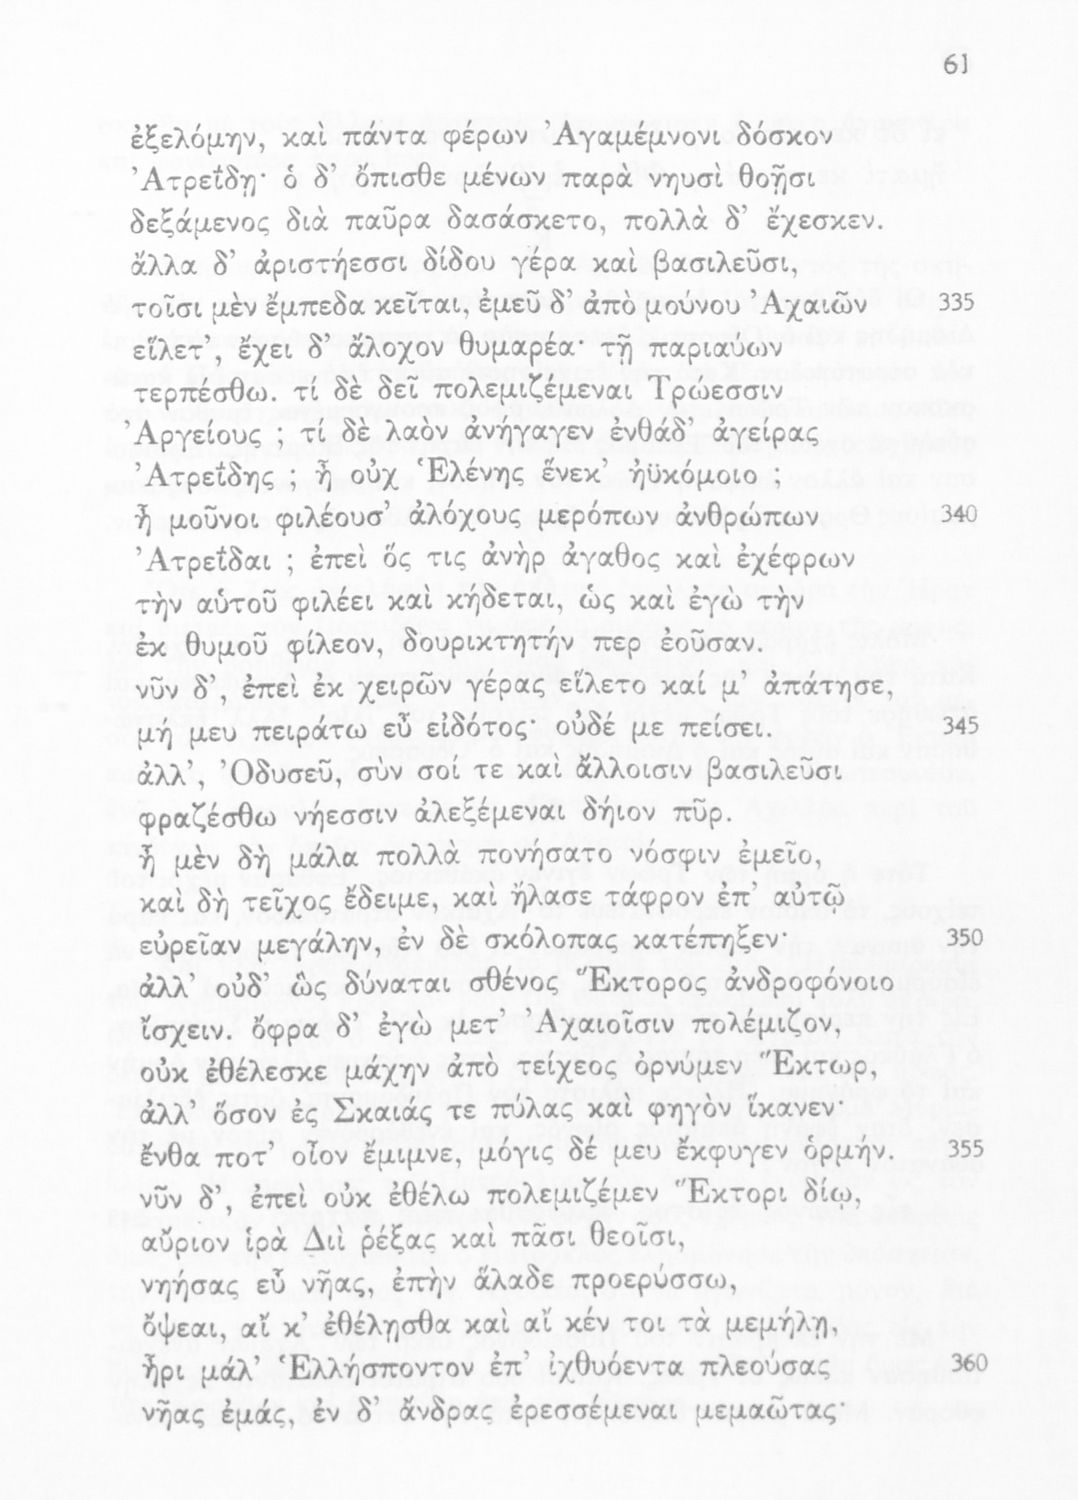 61
ἐξελόμην, καὶ πάντα φέρων Ἀγαμέμνονι δόσκον
Ἀτρεΐδῃ· ὁ δ’ ὄπισθε μένων παρὰ νηυσὶ θοῇσι
δεξάμενος διὰ παῦρα δασάσκετο, πολλὰ δ’ ἔχεσκεν.
ἄλλα δ’ ἀριστήεσσι δίδου γέρα καὶ βασιλεῦσι,
τοῖσι μὲν ἔμπεδα κεῖται, ἐμεῦ δ’ ἀπὸ μούνου Ἀχαιῶν 335
εἵλετ’, ἔχει δ’ ἄλοχον θυμαρέα· τῇ παριαύων
τερπέσθω. τί δὲ δεῖ πολεμιζέμεναι Τρώεσσιν
Ἀργείους ; τί δὲ λαὸν ἀνήγαγεν ἐνθάδ’ ἀγείρας
Ἀτρεΐδης ; ἦ οὐχ Ἑλένης ἕνεκ’ ἠϋκόμοιο ;
ἦ μοῦνοι φιλέουσ’ ἀλόχους μερόπων ἀνθρώπων 340
Ἀτρεΐδαι ; ἐπεὶ ὅς τις ἀνὴρ ἀγαθος καὶ ἐχέφρων
τὴν αὑτοῦ φιλέει καὶ κήδεται, ὡς καὶ ἐγὼ τὴν
ἐκ θυμοῦ φίλεον, δουρικτητήν περ ἐοῦσαν.
νῦν δ’, ἐπεὶ ἐκ χειρῶν γέρας εἵλετο καί μ’ ἀπάτησε,
μή μευ πειράτω εὖ εἰδότος· οὐδέ με πείσει. 345
ἀλλ’, Ὀδυσεῦ, σὺν σοί τε καὶ ἄλλοισιν βασιλεῦσι
φραζέσθω νήεσσιν ἀλεξέμεναι δήιον πῦρ.
ἦ μὲν δὴ μάλα πολλὰ πονήσατο νόσφιν ἐμεῖο,
καὶ δὴ τεῖχος ἔδειμε, καὶ ἤλασε τάφρον ἐπ’ αὐτῷ
εὐρεῖαν μεγάλην, ἐν δὲ σκόλοπας κατέπηξεν· 350
ἀλλ’ οὐδ’ ὣς δύναται σθένος Ἕκτορος ἀνδροφόνοιο
ἴσχειν. ὄφρα δ’ ἐγὼ μετ’ Ἀχαιοῖσιν πολέμιζον,
οὐκ ἐθέλεσκε μάχην ἀπὸ τείχεος ὀρνύμεν Ἕκτωρ,
ἀλλ’ ὅσον ἐς Σκαιάς τε πύλας καὶ φηγὸν ἵκανεν·
ἔνθα ποτ’ οἶον ἔμιμνε, μόγις δέ μευ ἔκφυγεν ὁρμήν. 355
νῦν δ’, ἐπεὶ οὐκ ἐθέλω πολεμιζέμεν Ἕκτορι δίῳ,
αὔριον ἱρὰ Διὶ ῥέξας καὶ πᾶσι θεοῖσι,
νηήσας εὖ νῆας, ἐπὴν ἅλαδε προερύσσω,
ὄψεαι, αἴ κ’ ἐθέλῃσθα καὶ αἴ κέν τοι τὰ μεμήλῃ,
ἦρι μάλ’ Ἑλλήσποντον ἐπ’ ἰχθυόεντα πλεούσας 360
νῆας ἐμάς, ἐν δ’ ἄνδρας ἐρεσσέμεναι μεμαῶτας·